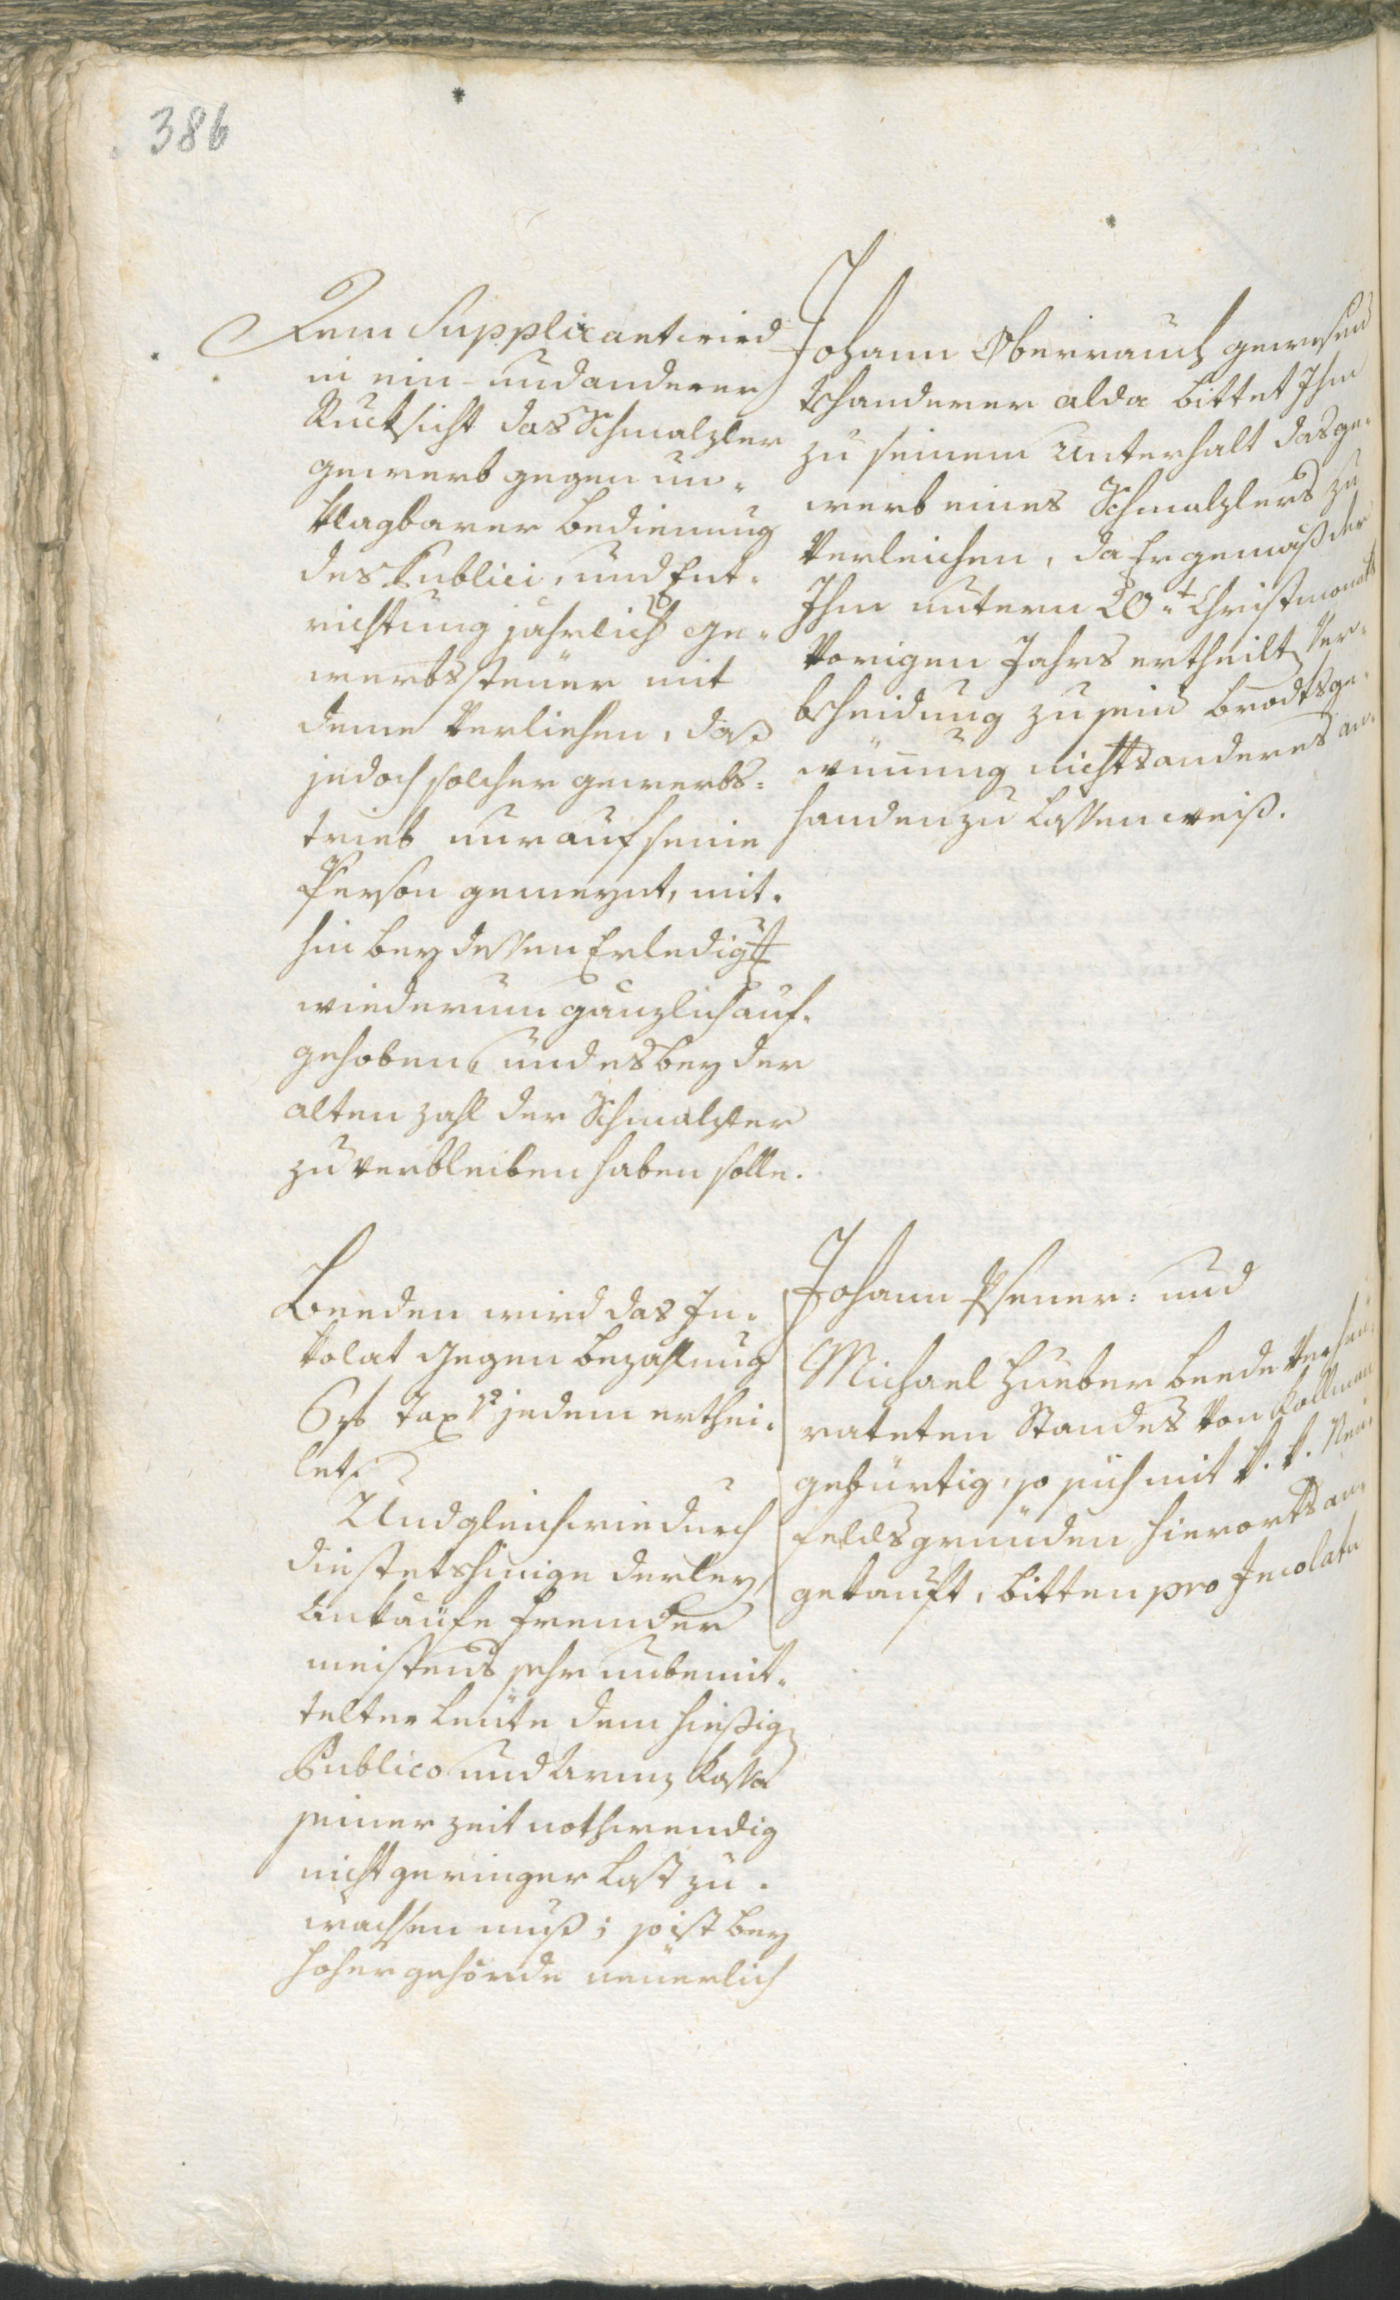 386
Dem Supplicant wird
in ein- und anderer
Rucksicht das Schmalzler
gewerb gegen un-
klagbarer bedienung
des Publici, und Ent-
richtung jährlich ge-
werbssteuer mit
deme verliehen, daß
jedoch solcher gewerbs-
trieb nur auf seine
Person gemeynt, mit-
hin bey dessen Erledigung
wiederum gänzlich auf-
gehoben, und es bey der
alten Zahl der Schmalzler
zu verbleiben haben solle.
Johann Oberrauch gewesener
alda bittet Ihm
zu seinem Unterhalt das ge-
werb eines Schmalzlers zu
verleichen, da Er gemäß der
Ihm untern 20.t Christmonats
vorigen Jahrs ertheilten Ver-
bscheidung zu sein brodtsge-
winnung nichts anderes an-
handen zu lassen weiß.
Beeden wird das In-
kolat gegen bezahlung
6 f Tax jedem erthei-
let.
Und gleichwie durch
die stetshinige derley
Ankäufe fremder
meistens sehr unbemit-
telter Leute dem hießigen
Publico und Armen Kassa
seiner Zeit nothwendig
nicht geringer Last zu-
wachsen muß; so ist bey
hoher gehörde neuerlich
Johann Psener: und
Michael Hueber beede verheu-
rateten Standes von Kollmann
gebürtig, so sich mit t. t.
feldsgründen hierorts an-
gekauft, bitten pro Incolatu